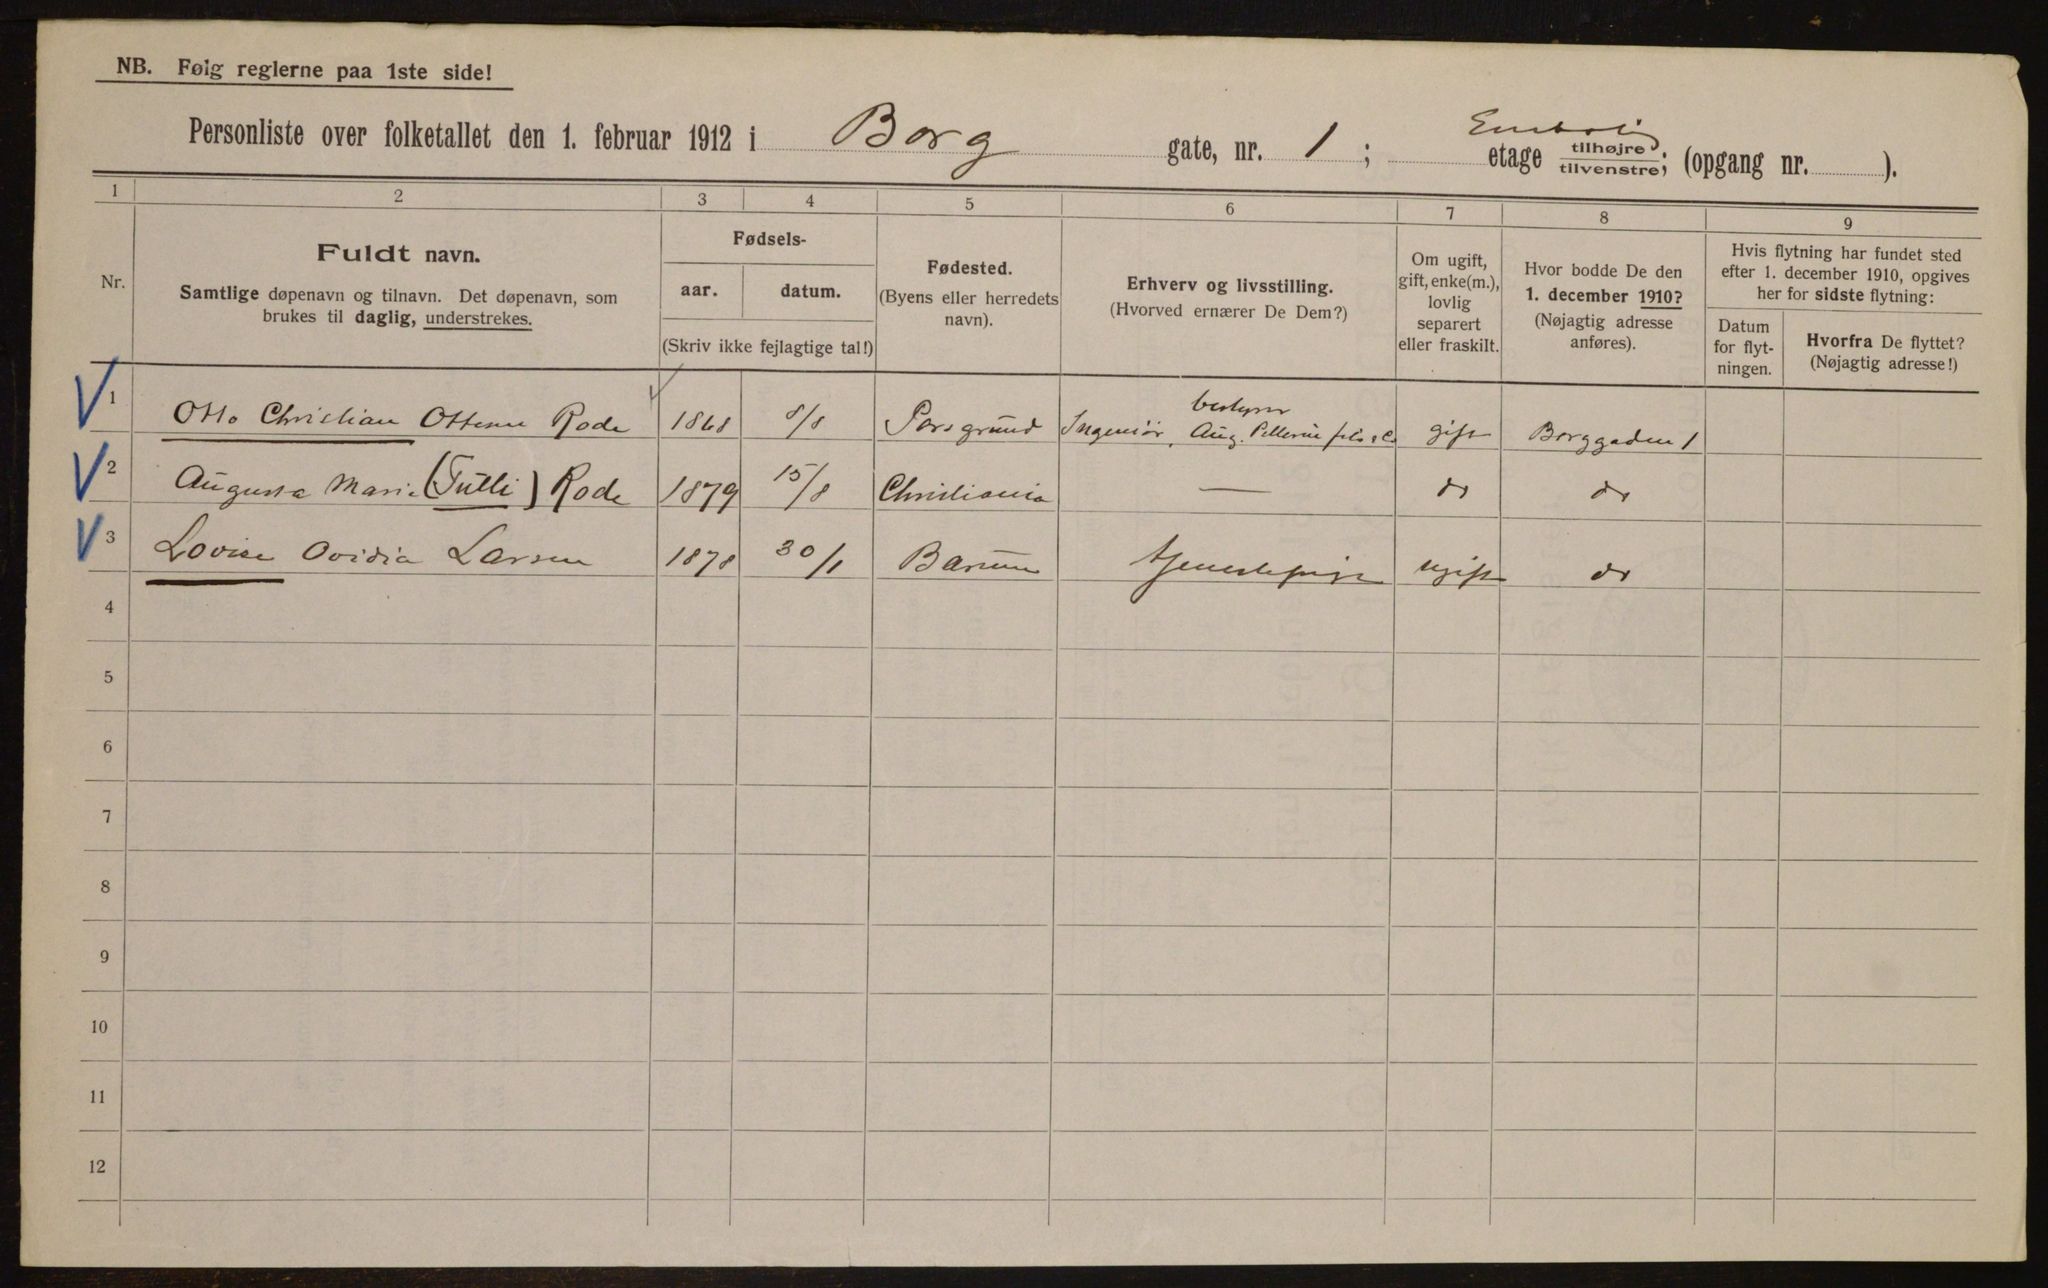 NB. Følg reglerne paa 1ste side!
Personliste over folketallet den 1. februar 1912 i Borg gate, nr. 1; etage tilhøjre tilvenstre; (opgang nr. ).
1 2 3 4 5 6 7 8 9
Nr.
Fuldt navn.
Samtlige døpenavn og tilnavn. Det døpenavn, som
brukes til daglig, understrekes.
Fødsels-
aar. datum.
(Skriv ikke fejlagtige tal!)
Fødested.
(Byens eller herredets
navn).
Erhverv og livsstilling.
(Hvorved ernærer De Dem?)
Om ugift,
gift, enke(m.),
lovlig
separert
eller fraskilt.
Hvor bodde De den
1. december 1910?
(Nøjagtig adresse
anføres).
Hvis flytning har fundet sted
efter 1. december 1910, opgives
her for sidste flytning:
Datum
for flyt-
ningen.
Hvorfra De flyttet?
(Nøjagtig adresse!)
bestyrer
1 Otto Christian Ottesen Rode 1868 8/8 Porsgrund Ingeniør, Aug. Pellerin fils & Co gift Borggaden 1
2 Augusta Marie (Tulli) Rode 1879 15/8 Christiania — do do
3 Lovise Ovidia Larsen 1878 30/1 Bærum tjenestepige ugift do
4
5
6
7
8
9
10
11
12